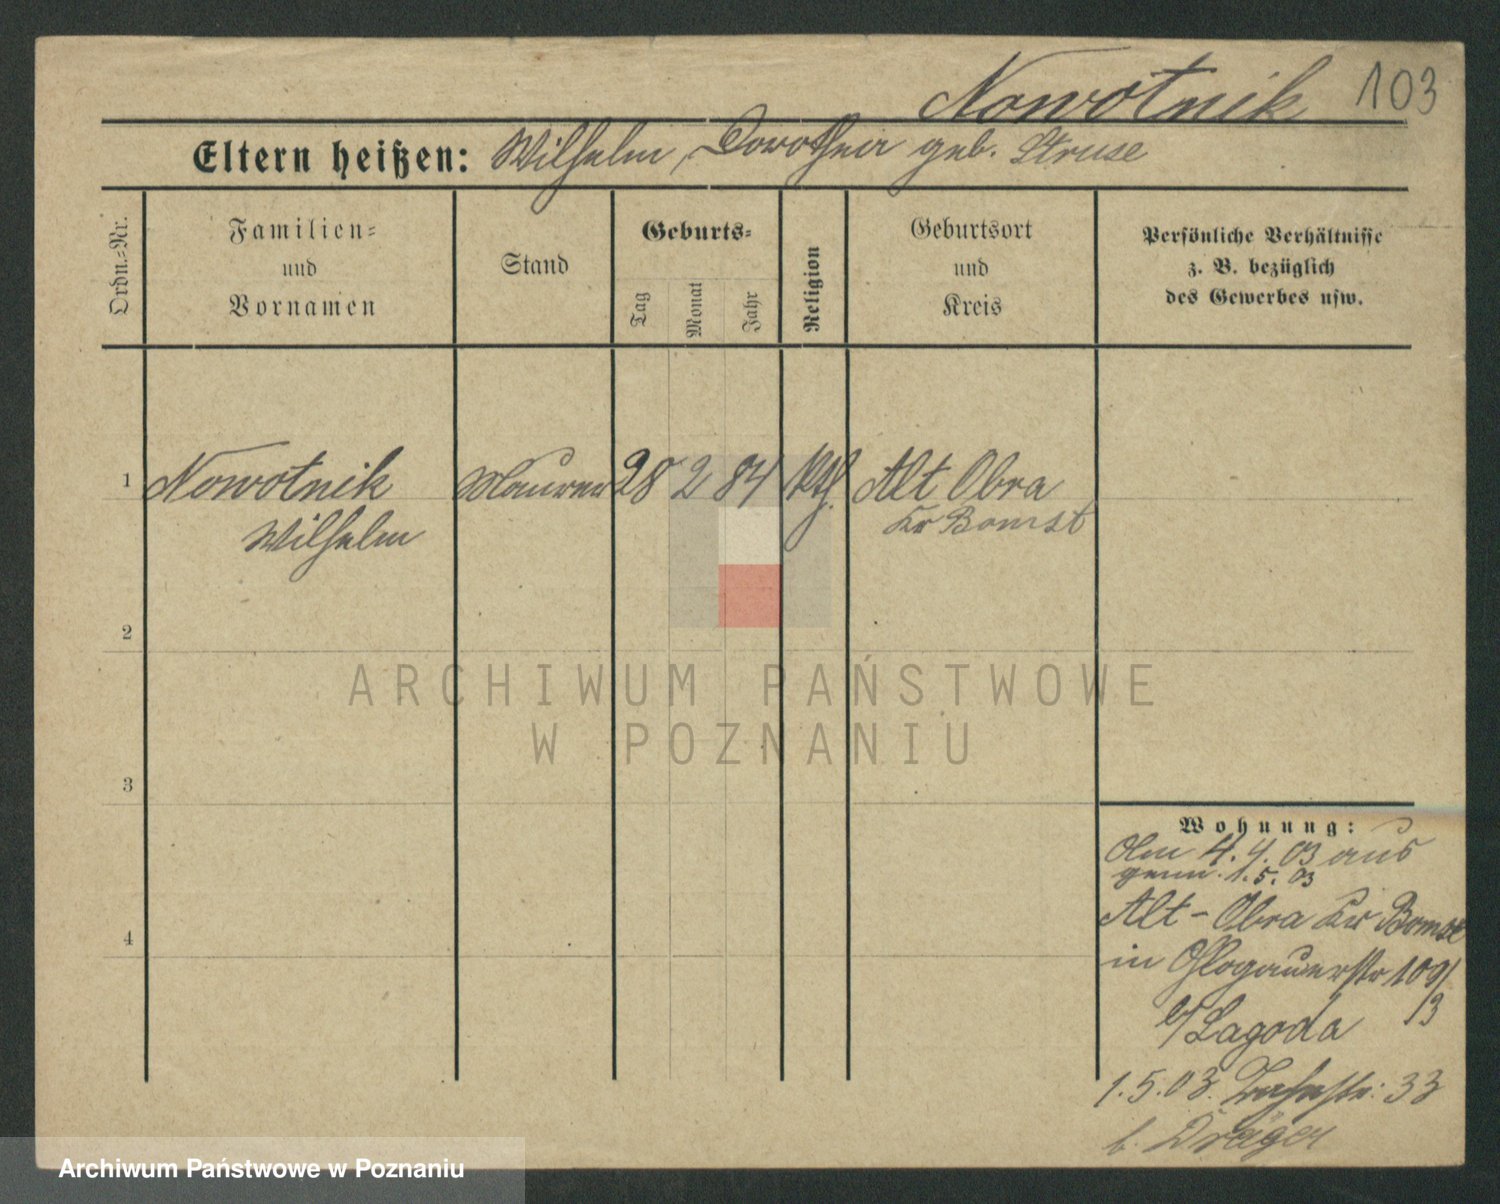 Nowotnik 103
Eltern heißen: Wilhelm, Dorothea geb. Struse
Ordn.-Nr.
Familien-
und
Vornamen
Stand
Geburts-
Tag
Monat
Jahr
Religion
Geburtsort
und
Kreis
Persönliche Verhältnisse
z. B. bezüglich
des Gewerbes usw.
1 Nowotnik Maurer 28 2 84 kth. Alt Obra
Wilhelm Kr Bomst
2
ARCHIWUM PAŃSTWOWE
W POZNANIU
3
Wohnung:
4. 4. 03 aus
gem. 1. 5. 03
4
Alt-Obra Kr Bomst
in Glogauerstr 109/
13
b/ Lagoda
1. 5. 03. 33
b. Dräger
Archiwum Państwowe w Poznaniu